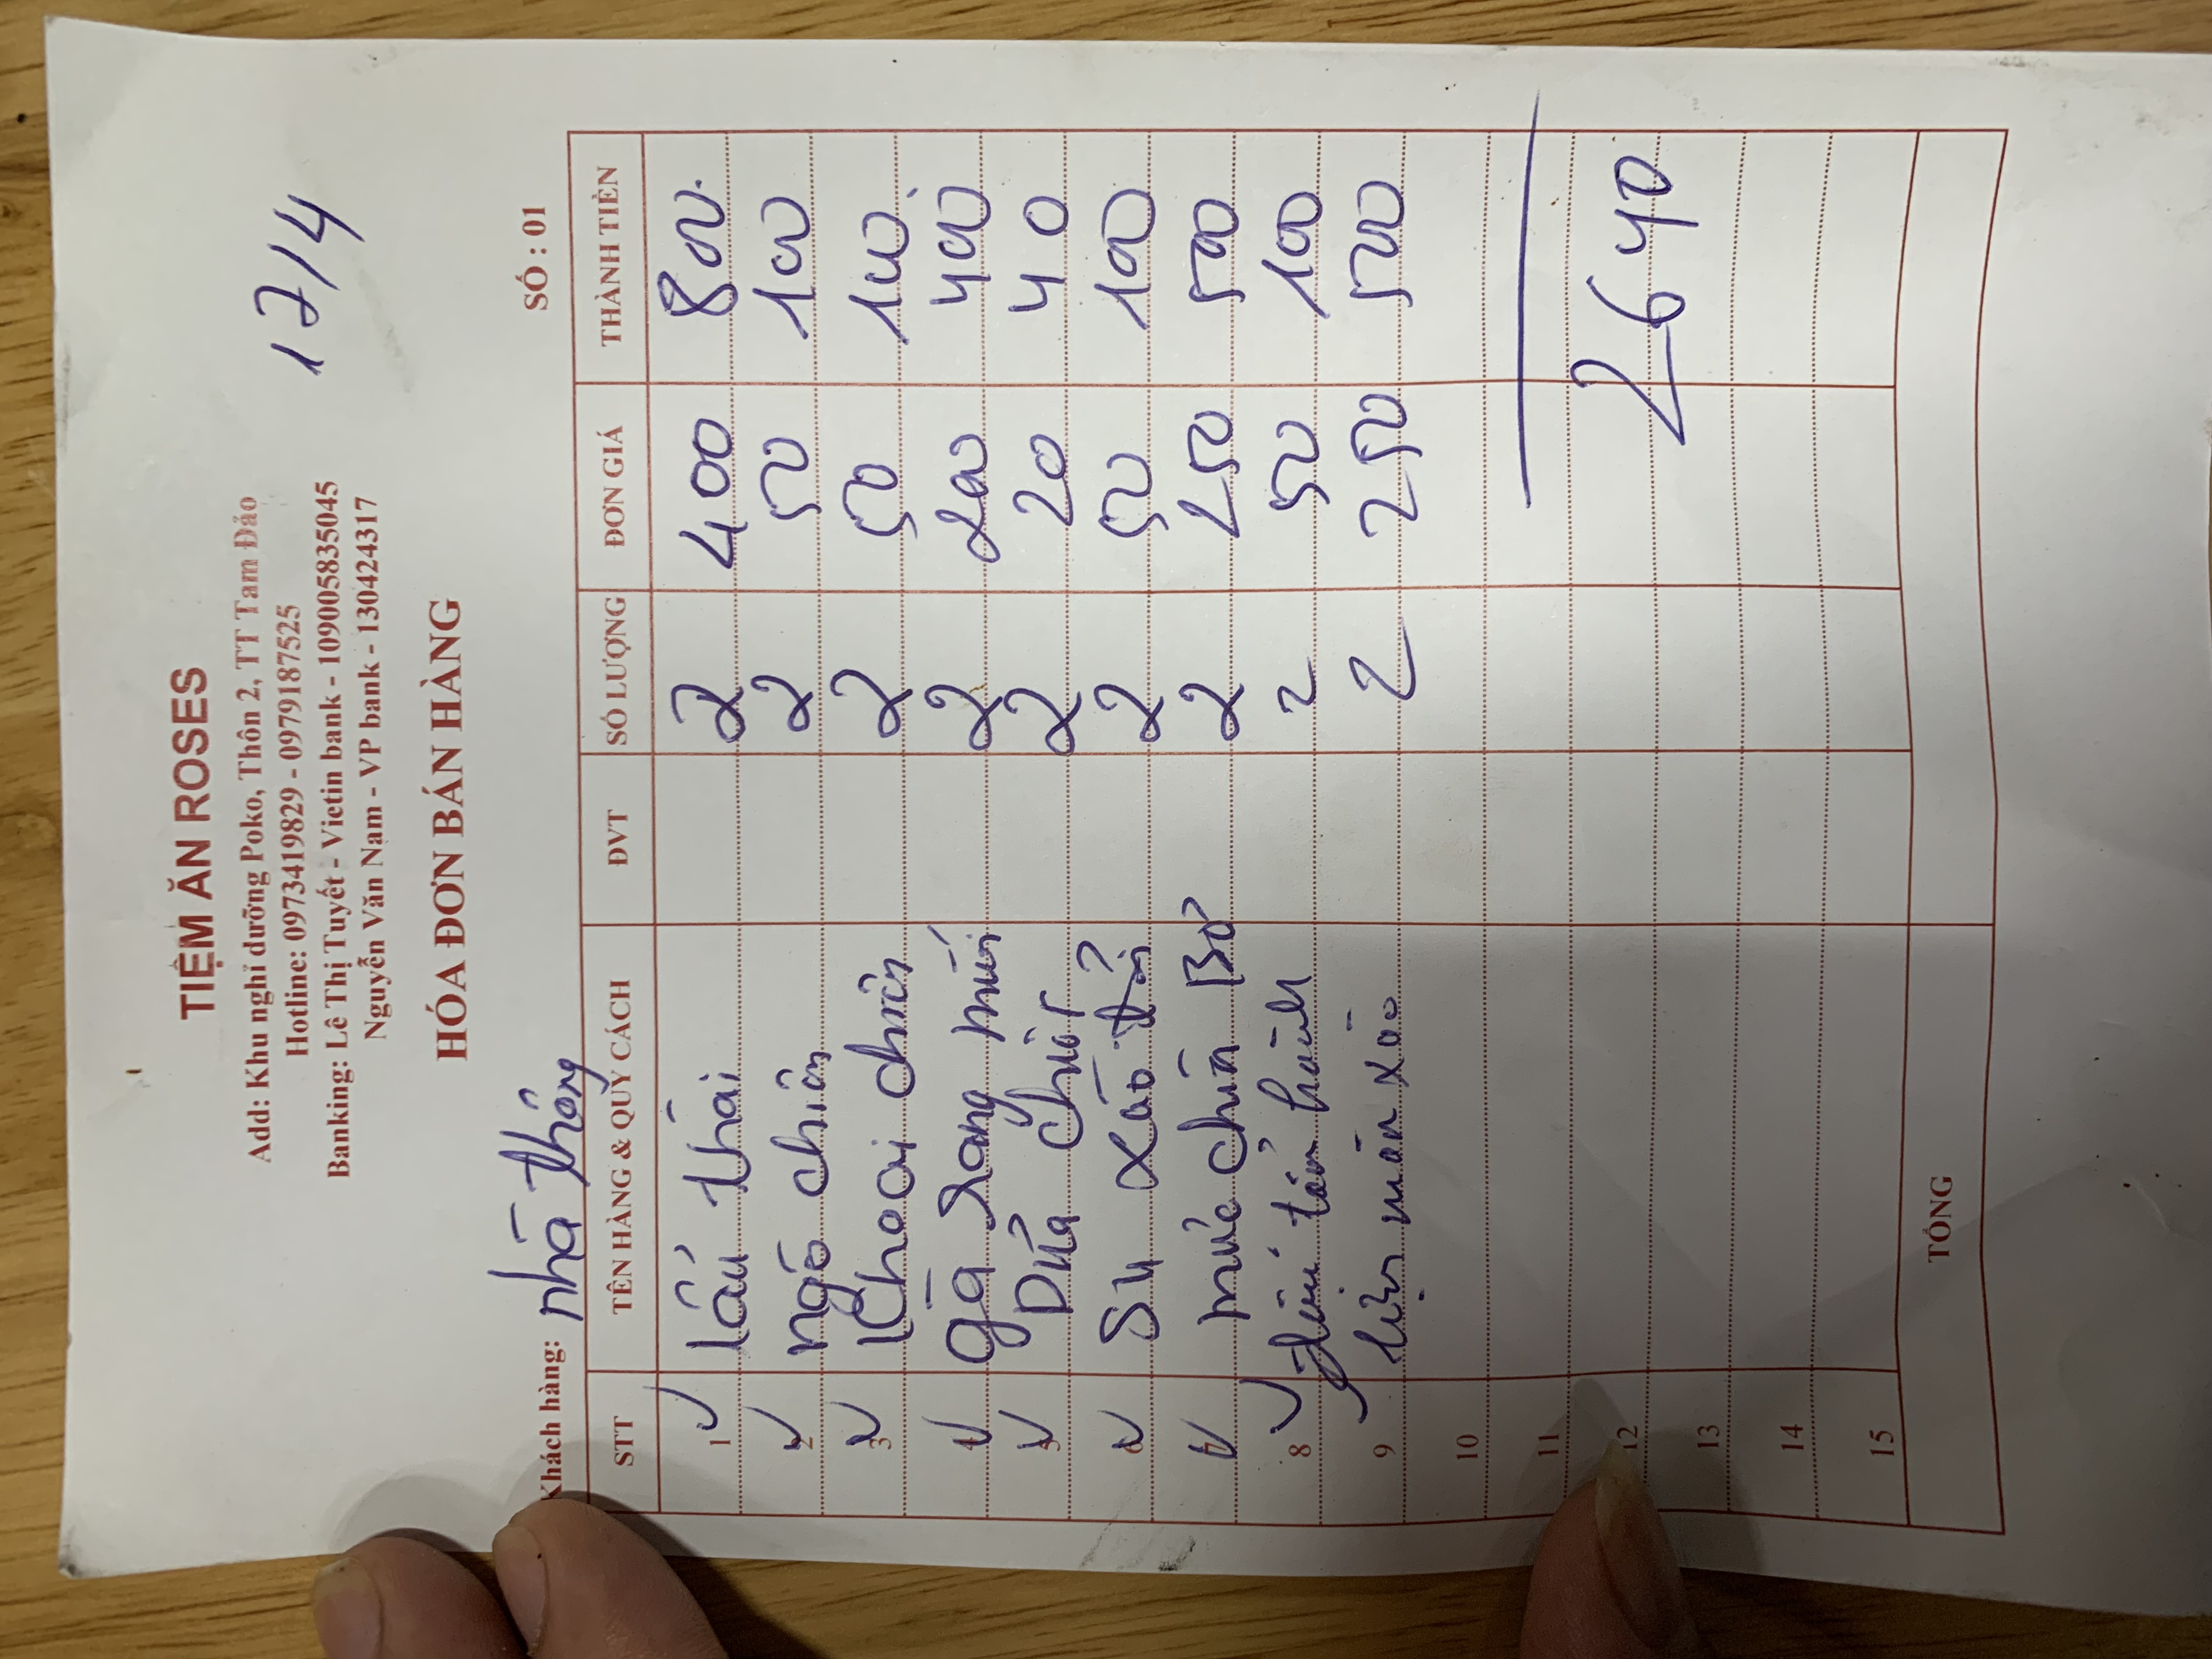 TIỆM ĂN ROSES
Add: Khu nghỉ dưỡng Poko, Thôn 2, TT Tam Đảo
Hotline: 0973419829 - 0979187525
17/4
Banking: Lê Thị Tuyết - Vietin bank - 109005835045
Nguyễn Văn Nam - VP bank - 130424317
HÓA ĐƠN BÁN HÀNG
Khách hàng: nhà thông
SỐ : 01
STT TÊN HÀNG & QUY CÁCH ĐVT SỐ LƯỢNG ĐƠN GIÁ THÀNH TIỀN
1 lẩu thái 2 400 800
2 ngô chiên 2 50 100
3 Khoai chiên 2 50 100
4 gà rang muối 2 200 400
5 Dưa chuột 2 20 40
6 Su xào tỏi 2 50 100
7 mực chiên Bơ 2 250 500
8 đậu tẩm hành 2 50 100
9 lợn mán xào 2 250 500
10
11
12 2640
13
14
15
TỔNG